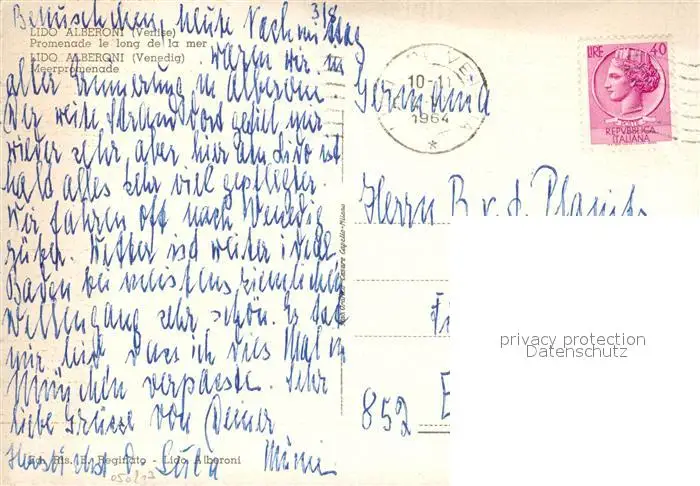 3/8
heute Nachmittag
LIDO ALBERONI (Venise)
Promenade le long de la mer
waren wir in
LIDO ALBERONI (Venedig)
Meerpromenade
alter Erinnerung in Alberoni
Der weite Strand dort gefiel mir
wieder sehr, aber hier am Lido ist
halt alles sehr viel gepflegter.
Wir fahren oft nach Venedig
rüber. Wetter ist weiter ideal
Baden bei meistens ziemlichem
Wellengang sehr schön. Es tat
mir leid dass ich dies Mal in
München verpasste. Sehr
liebe Grüsse von Deiner
Ed. Ris. P. Reginato - Lido Alberoni
10-11
1964
LIRE 40
REPVBBLICA
ITALIANA
Germania
Herrn B. v. d. Planitz
852 E
privacy protection
Datenschutz